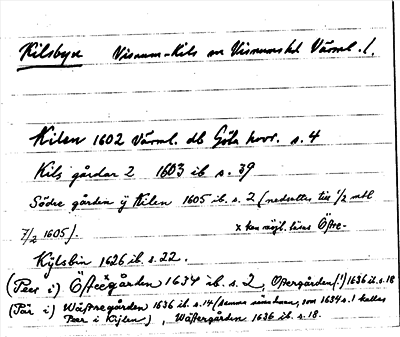 Kilsbyn Visnum-Kils sn Visnums hd Värml. l.
Kilen 1602 Värml. db Göta hovr. s. 4
Kils gårdar 2 1603 ib s. 39
Södre gården ÿ Kilen 1605 ib. s. 2 (nedsattes till 1/2 mtl
7/2 1605). x kan möjl. läsas Öffre-
Kÿlsbin 1626 ib. s. 22.
(Peer i) Öffregården 1634 ib. s. 2, Ostergården (!) 1636 ib. s. 18
(Pär i) Wästregården 1636 ib. s. 14 (samma som 1634 s. 1 kallas
Peer i Kijlen), Wästergården 1636 ib. s. 18.